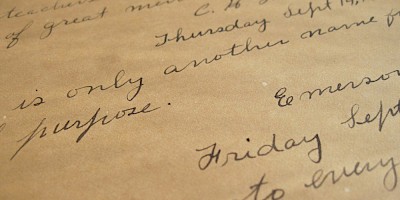 teachers
of great men
C. H
Thursday Sept 19,
is only another name f
purpose.
Emerson
Friday Sept
to every